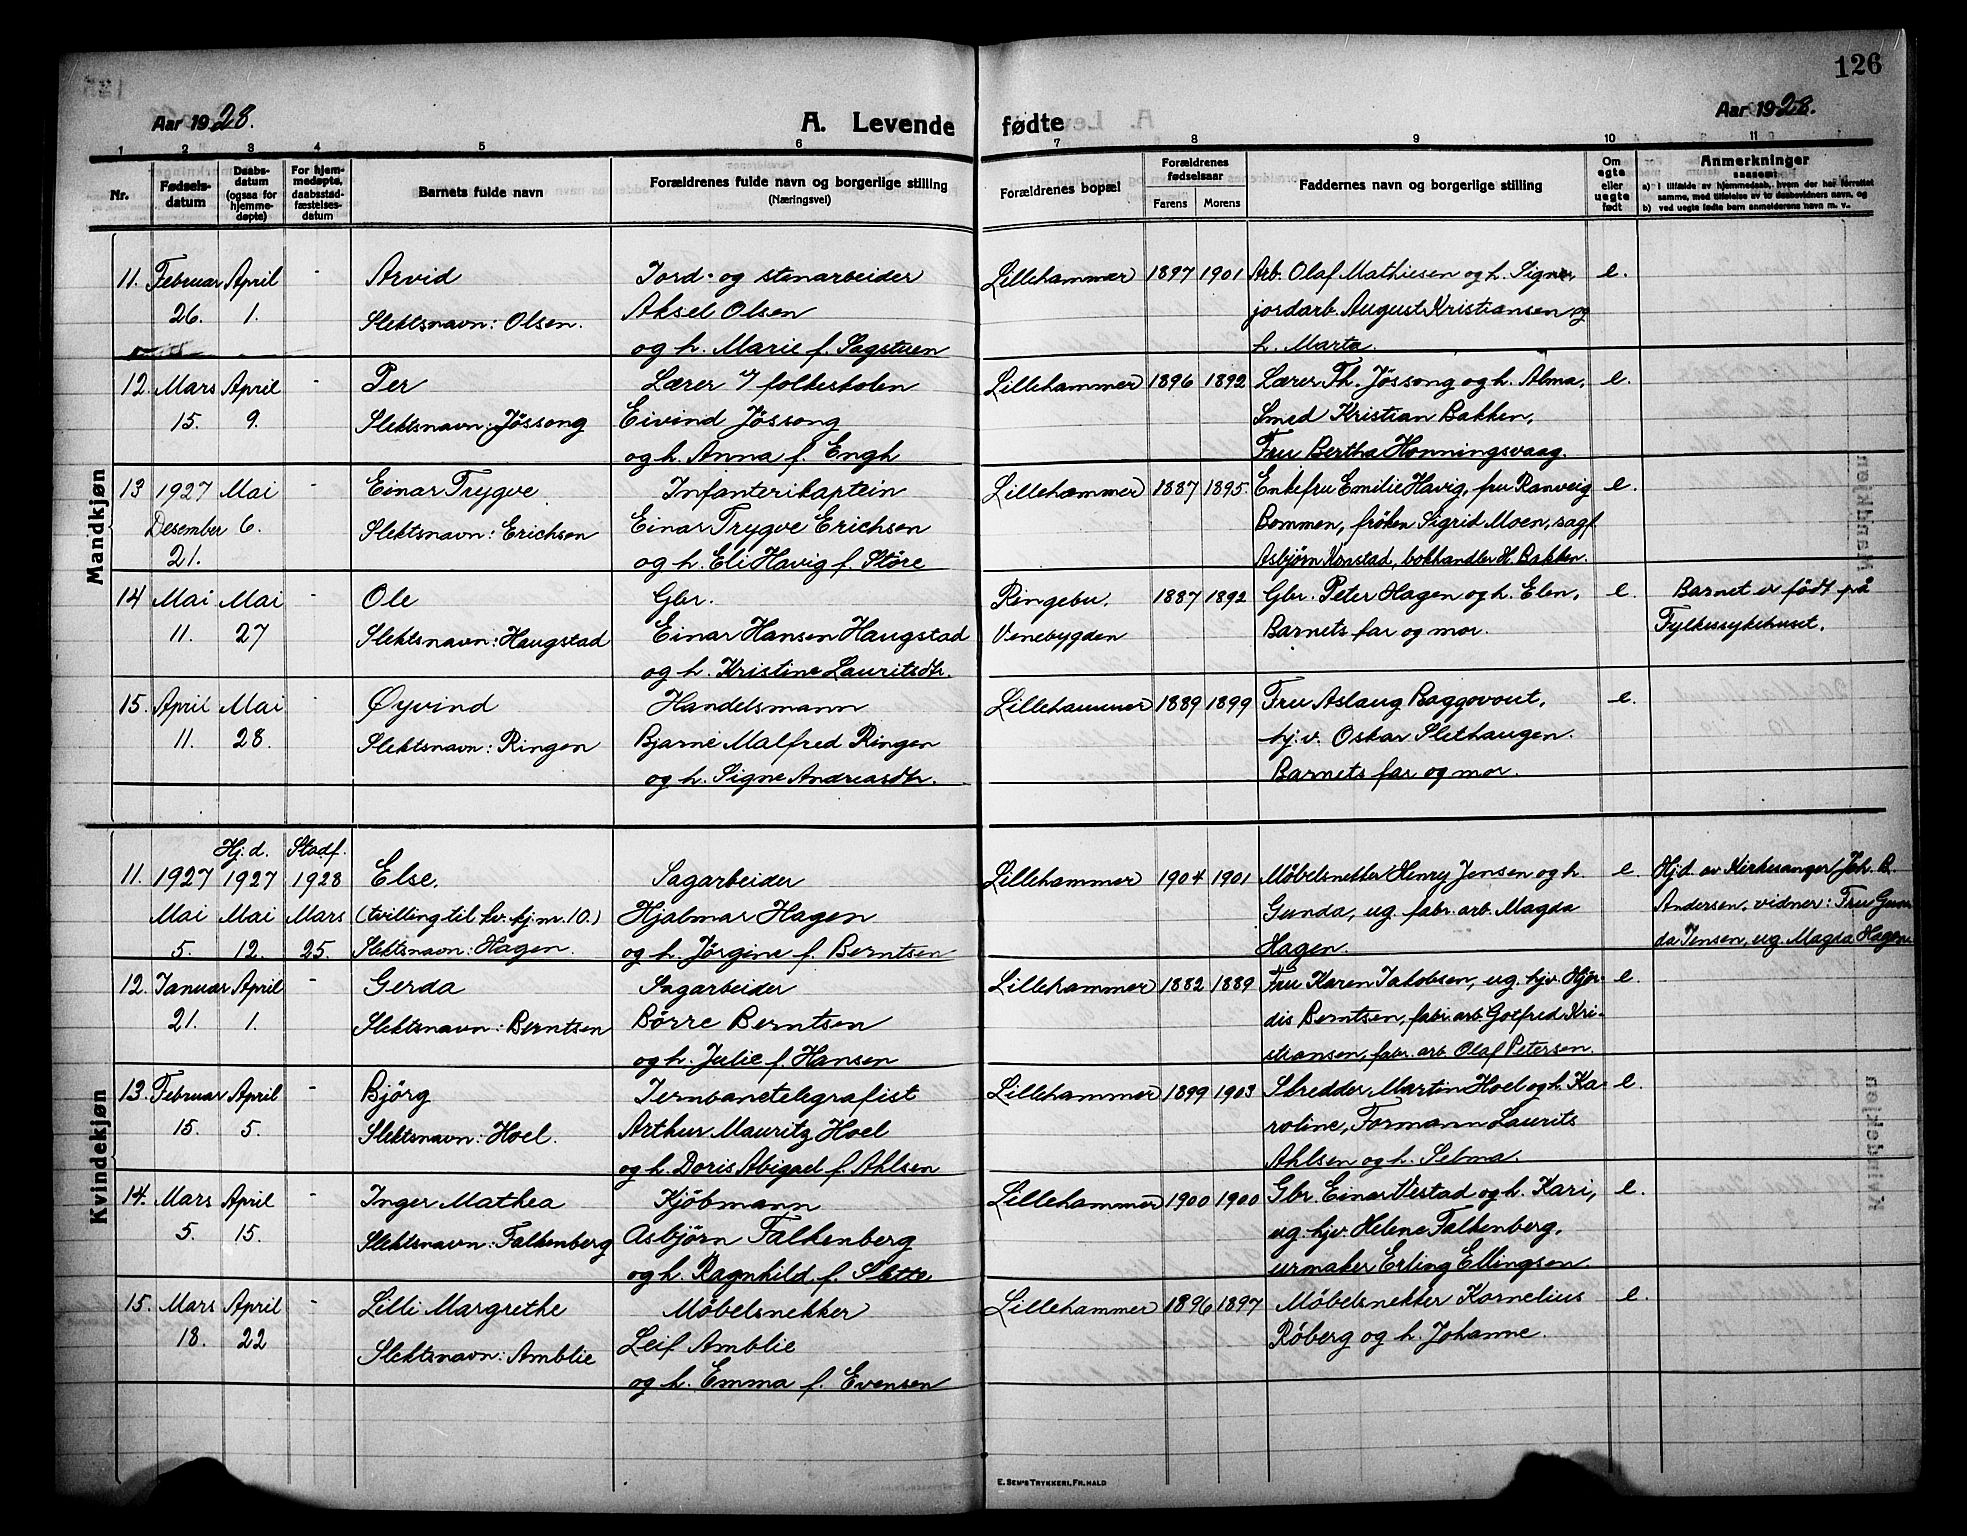 126
Aar 1928. A. Levende fødte Aar 1928.
1 2 3 4 5 6 7 8 9 10 11
Nr. Fødsels-datum Daabs-datum (ogsaa for hjemme-døpte) For hjem-medøpte, daabsstad-fæstelses-datum Barnets fulde navn Forældrenes fulde navn og borgerlige stilling (Næringsvei) Forældrenes bopæl Forældrenes fødselsaar Farens Morens Faddernes navn og borgerlige stilling Om egte eller uegte født Anmerkninger saasom:
a) i tilfælde av hjemmedaab, hvem der har forrettet samme, med tilføielse av to daabsvidners navn, og
b) ved uegte fødte barn anmelderens navn m. v.
Mandkjøn
11. Februar April - Arvid Jord- og stenarbeider Lillehammer 1897 1901 Arb. Olaf Mathiesen og h. Signe, e.
26. 1. Slektsnavn: Olsen. Aksel Olsen jordarb. August Kristiansen og
og h. Marie f. Sagstuen h. Marta.
12. Mars April - Per Lærer v/ folkeskolen Lillehammer 1896 1892 Lærer Th. Jøssong og h. Alma, e.
15. 9. Slektsnavn: Jøssong Eivind Jøssong Smed Kristian Bakken,
og h. Anna f. Engh Fru Bertha Honningsvaag.
13 1927 Mai - Einar Trygve Infanterikaptein Lillehammer 1887 1895. Enkefru Emilie Havig, fru Ranveig e.
Desember 6. Slektsnavn: Erichsen Einar Trygve Erichsen Bommen, frøken Sigrid Moen, sagf.
21. og h. Eli Havig f. Støre Asbjørn Konstad, bokhandler H. Bakken.
14 Mai Mai - Ole Gbr. Ringebu, 1887 1892 Gbr. Peter Hagen og h. Elen, e. Barnet er født på
11. 27 Slektsnavn: Haugstad Einar Hansen Haugstad Venebygden Barnets far og mor. Fylkessykehuset.
og h. Kristine Lauritsdtr.
15. April Mai - Øyvind Handelsmann Lillehammer 1889 1899 Fru Aslaug Baggovout, e.
11. 28. Slektsnavn: Ringen Bjarne Malfred Ringen hj.v. Oskar Slethaugen.
og h. Signe Andreasdtr. Barnets far og mor.
Kvindekjøn
Hj.d. Stadf.
11. 1927 1927 1928 Else. Sagarbeider Lillehammer 1904 1901 Møbelsnekker Henry Jensen og h. e. Hjd. av Kirkesanger Joh. B.
Mai Mai Mars (tvilling til kv. kj. nr. 10.) Hjalmar Hagen Gunda, ug. fabr. arb. Magda Andersen, vidner: Fru Gun-
5. 12. 25. Slektsnavn: Hagen. og h. Jørgine f. Berntsen Hagen. da Jensen, ug. Magda Hagen
12. Januar April - Gerda Sagarbeider Lillehammer 1882 1889 Fru Karen Jakobsen, ug. hjv. Hjør- e.
21. 1. Slektsnavn: Berntsen Børre Berntsen dis Berntsen, fabr. arb. Gotfred Kri-
og h. Julie f. Hansen stiansen, fabr. arb. Olaf Petersen.
13. Februar April - Bjørg Jernbanetelegrafist Lillehammer 1899 1903 Skredder Martin Hoel og h. Ka- e.
15. 5. Slektsnavn: Hoel. Arthur Mauritz Hoel roline, Formann Laurits
og h. Doris Abigael f. Ahlsen Ahlsen og h. Selma.
14. Mars April - Inger Mathea Kjøbmann Lillehammer 1900 1900 Gbr. Einar Vestad og h. Kari, e.
5. 15. Slektsnavn: Falkenberg Asbjørn Falkenberg ug. hjv. Helene Falkenberg,
og h. Ragnhild f. Slette urmaker Erling Ellingsen.
15. Mars April - Lilli Margrethe Møbelsnekker Lillehammer 1896 1897 Møbelsnekker Kornelius e.
18. 22 Slektsnavn: Amblie Leif Amblie Røberg og h. Johanne.
og h. Emma f. Evensen
E. SEM'S TRYKKERI, FR.HALD